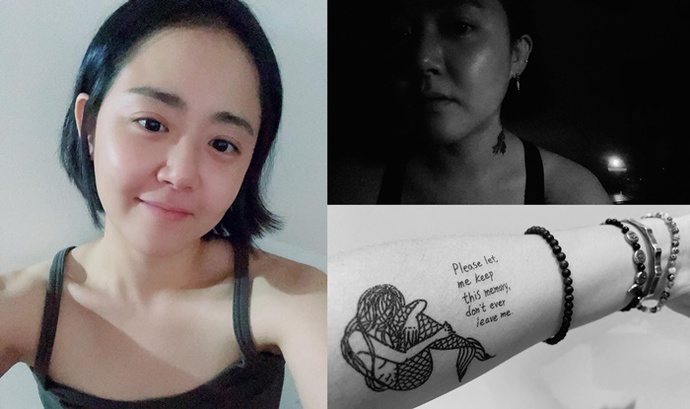 Please let,
me keep
this memory,
don't ever
leave me.